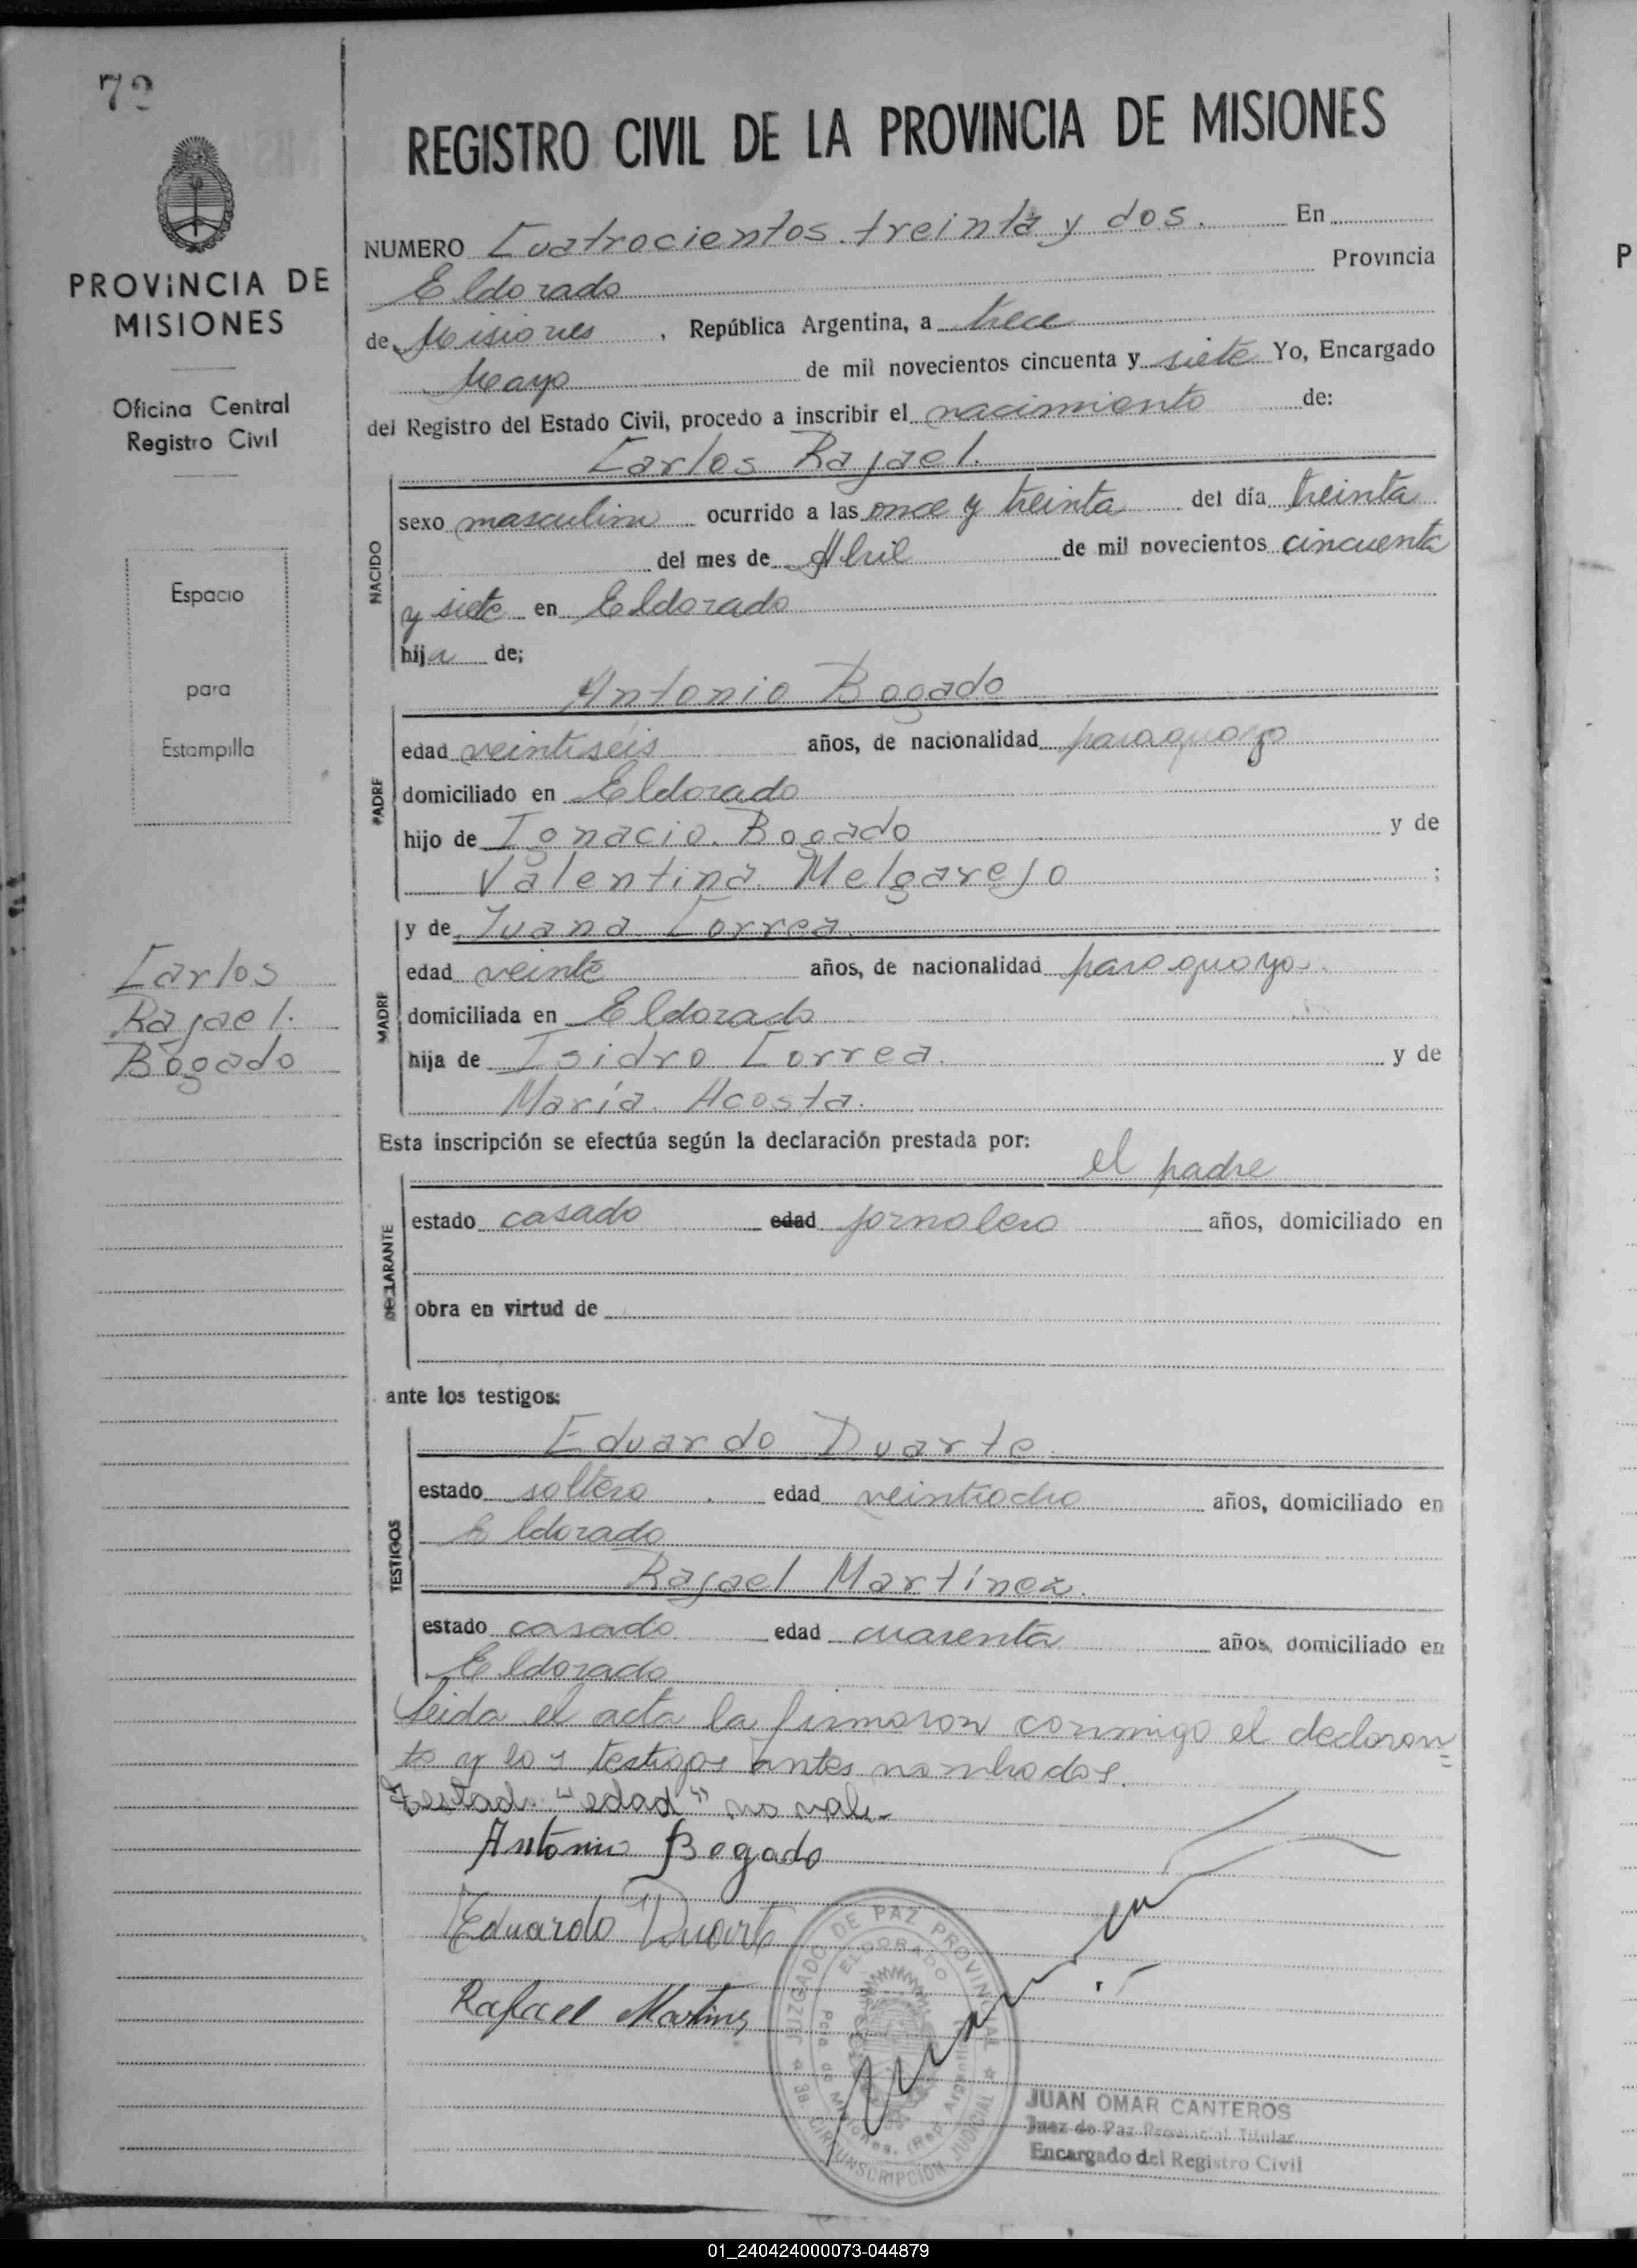 72
PROVINCIA DE
MISIONES
Oficina Central
Registro Civil
Espacio
para
Estampilla
Carlos
Rafael.
Bogado
REGISTRO CIVIL DE LA PROVINCIA DE MISIONES
NUMERO Cuatrocientos treinta y dos. En
Eldorado Provincia
de Misiones, República Argentina, a trece
Mayo de mil novecientos cincuenta y siete Yo, Encargado
del Registro del Estado Civil, procedo a inscribir el nacimiento de:
Carlos Rafael.
NACIDO
sexo masculino ocurrido a las once y treinta del día treinta
del mes de Abril de mil novecientos cincuenta
y siete en Eldorado
hija de;
Antonio Bogado
PADRE
edad veintiséis años, de nacionalidad paraguayo
domiciliado en Eldorado
hijo de Ignacio Bogado y de
Valentina Melgarejo ;
y de Juana Correa
MADRE
edad veinte años, de nacionalidad paraguaya
domiciliada en Eldorado
hija de Isidro Correa. y de
María Acosta.
Esta inscripción se efectúa según la declaración prestada por:
el padre
DECLARANTE
estado casado edad jornalero años, domiciliado en
obra en virtud de
ante los testigos:
Eduardo Duarte
TESTIGOS
estado soltero edad veintiocho años, domiciliado en
Eldorado
Rafael Martínez.
estado casado edad cuarenta años, domiciliado en
Eldorado
Leida el acta la firmaron conmigo el declaran=
te y los testigos antes nombrados.
Testado "edad" no vale-
Antonio Bogado
Eduardo Duarte
Rafael Martinez
JUZGADO DE PAZ PROVINCIAL
ELDORADO
Pcia de Misiones, (Rep. Argentina)
3a. CIRCUNSCRIPCION JUDICIAL
JUAN OMAR CANTEROS
Juez de Paz Provincial Titular
Encargado del Registro Civil
P
01_240424000073-044879